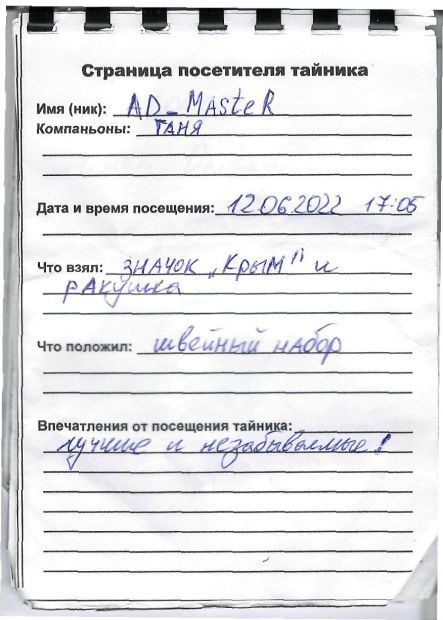 Страница посетителя тайника
Имя (ник): AD_MASteR
Компаньоны: ТАНЯ
Дата и время посещения: 12.06.2022 17:05
Что взял: ЗНАЧОК „КРЫМ" и
РАКУШКА
Что положил: швейный набор
Впечатления от посещения тайника:
лучшие и незабываемые!